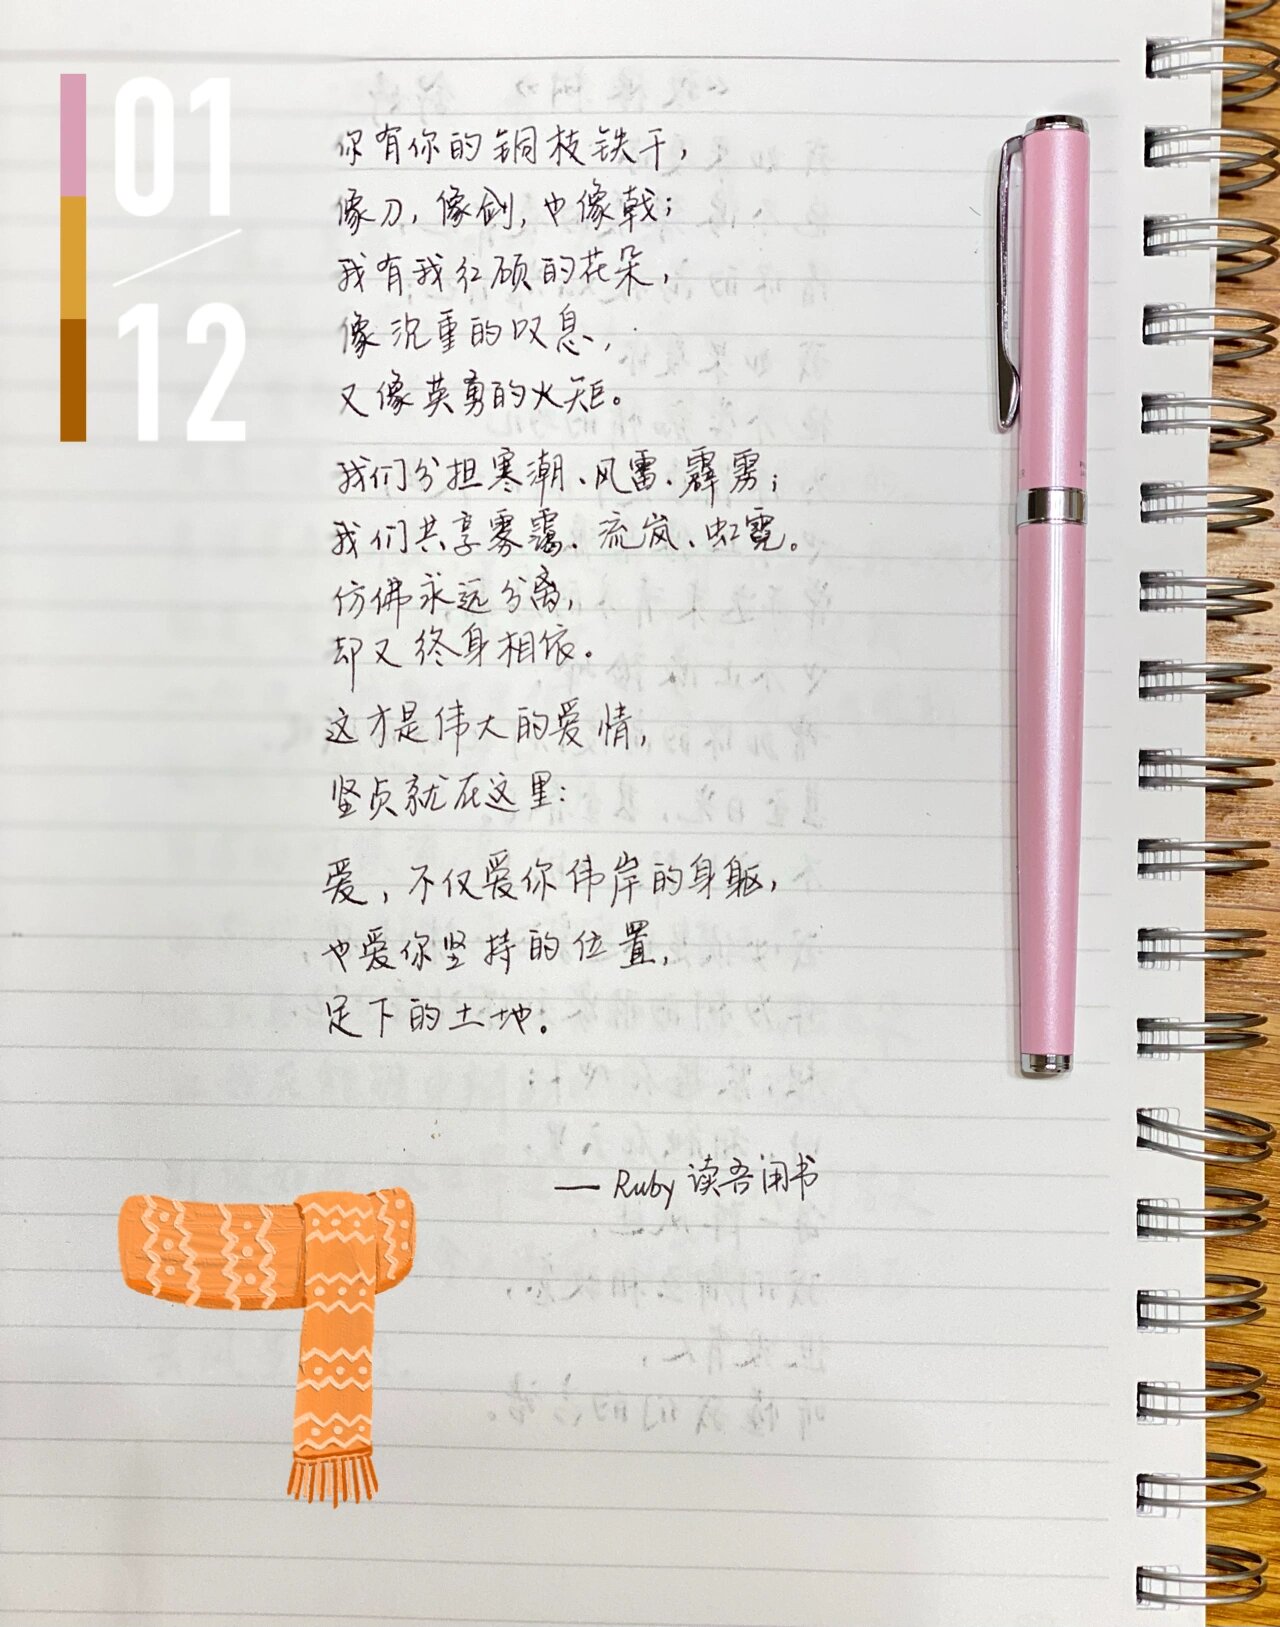 01
12
你有你的铜枝铁干，
像刀，像剑，也像戟；
我有我红硕的花朵，
像沉重的叹息，
又像英勇的火炬。
我们分担寒潮、风雷、霹雳；
我们共享雾霭、流岚、虹霓。
仿佛永远分离，
却又终身相依。
这才是伟大的爱情，
坚贞就在这里：
爱，不仅爱你伟岸的身躯，
也爱你坚持的位置，
足下的土地。
— Ruby 读吾闲书